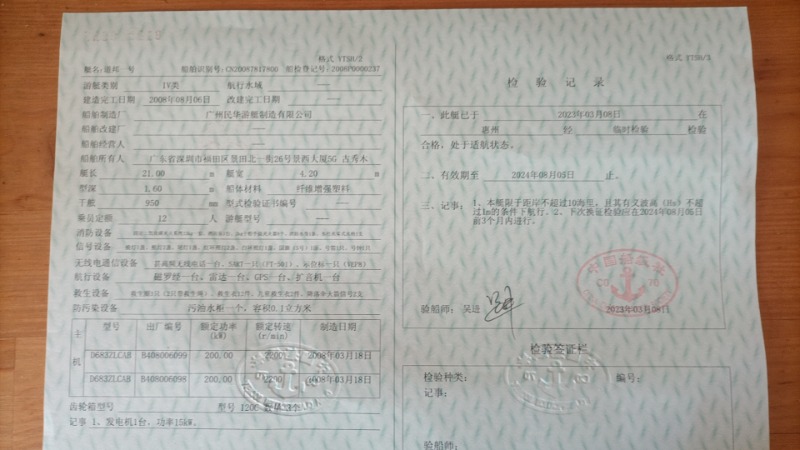 格式 YTSH/2
艇名:道邦一号 船舶识别号:CN20087817800 船检登记号:2008P0000237
游艇类别 IV类 航行水域 ——
建造完工日期 2008年08月06日 改建完工日期 ——
船舶制造厂 广州民华游艇制造有限公司
船舶改建厂 ——
船舶经营人 ——
船舶所有人 广东省深圳市福田区景田北一街26号景西大厦5G 古秀木
艇长 21.00 艇宽 4.20
型深 1.60 船体材料 纤维增强塑料
干舷 950 mm 型式检验证书编号 ——
乘员定额 12 人 游艇型号 ——
消防设备
信号设备
无线电通信设备 甚高频无线电话一台, SART一只
航行设备 磁罗经一台、雷达一台、GPS一台、扩音机一台
救生设备
防污染设备 污油水柜一个, 容积0.1立方米
主机 型号 出厂编号 额定功率(kW) 额定转速(r/min) 制造日期
D683ZLCAB B408006099 200.00 2200 2008年03月18日
D683ZLCAB B408006098 200.00 2200 2008年03月18日
齿轮箱型号 型号 120C 数量 3个
记事 1、发电机1台, 功率15kW.
格式 YTSH/3
检 验 记 录
一、此艇已于 2023年03月08日 在
惠州 经 临时检验 检验
合格, 处于适航状态。
二、有效期至 2024年08月05日 止。
三、记事: 1、本艇限于距岸不超过10海里, 且其有义波高(Hs)不超
过1m的条件下航行。2、下次换证检验应在2024年08月06日
前3个月内进行。
中国船级社
CS 70
验船师: 吴进
2023年03月08日
检验签证栏
检验种类: 编号:
记事:
验船师: